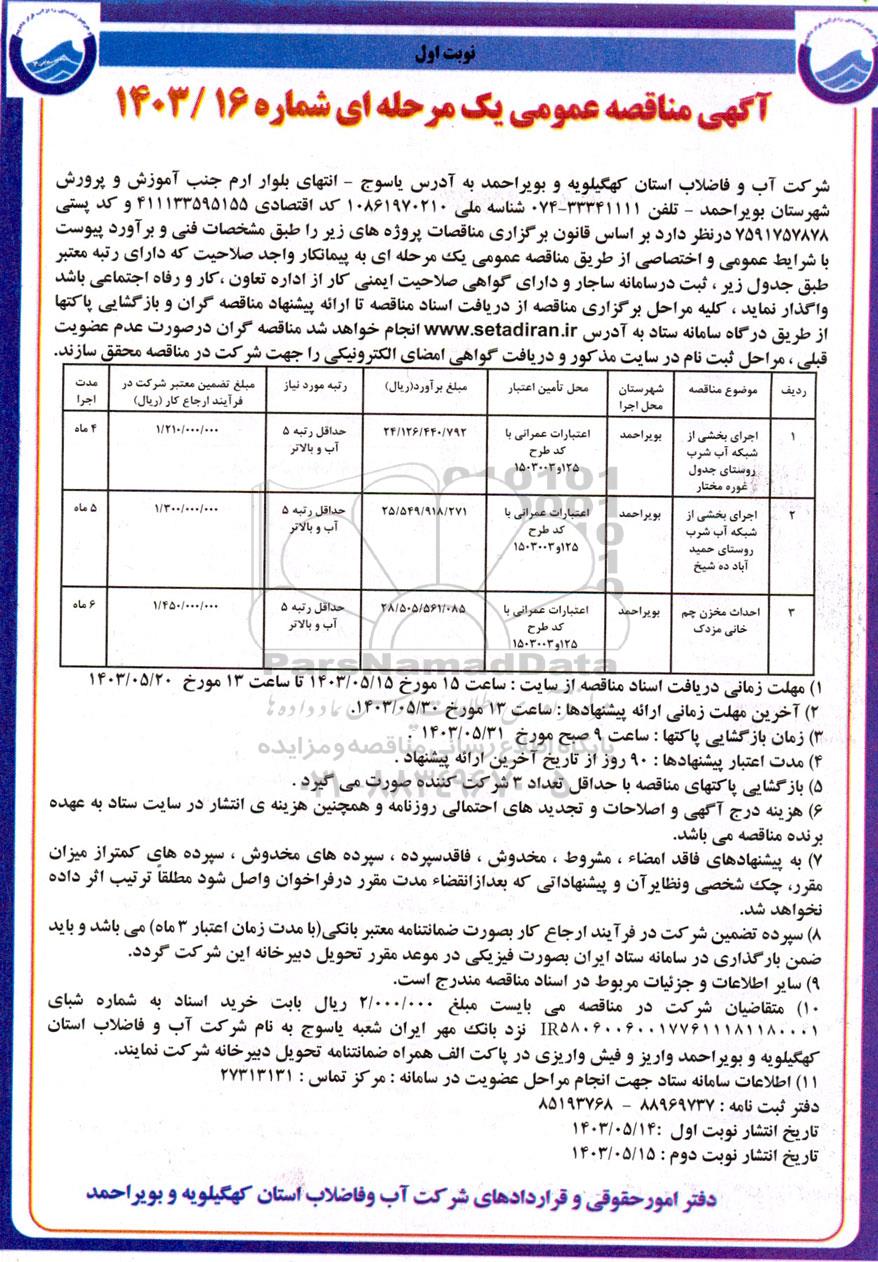 نوبت اول
آگهی مناقصه عمومی یک مرحله ای شماره ۱۶ /۱۴۰۳
شرکت آب و فاضلاب استان کهگیلویه و بویراحمد به آدرس یاسوج - انتهای بلوار ارم جنب آموزش و پرورش
شهرستان بویراحمد - تلفن ۳۳۳۴۱۱۱۱-۰۷۴ شناسه ملی ۱۰۸۶۱۹۷۰۲۱۰ کد اقتصادی ۴۱۱۱۳۳۵۹۵۱۵۵ و کد پستی
۷۵۹۱۷۵۷۸۷۸ درنظر دارد بر اساس قانون برگزاری مناقصات پروژه های زیر را طبق مشخصات فنی و برآورد پیوست
با شرایط عمومی و اختصاصی از طریق مناقصه عمومی یک مرحله ای به پیمانکار واجد صلاحیت که دارای رتبه معتبر
طبق جدول زیر ، ثبت درسامانه ساجار و دارای گواهی صلاحیت ایمنی کار از اداره تعاون ،کار و رفاه اجتماعی باشد
واگذار نماید ، کلیه مراحل برگزاری مناقصه از دریافت اسناد مناقصه تا ارائه پیشنهاد مناقصه گران و بازگشایی پاکتها
از طریق درگاه سامانه ستاد به آدرس www.setadiran.ir انجام خواهد شد مناقصه گران درصورت عدم عضویت
قبلی ، مراحل ثبت نام در سایت مذکور و دریافت گواهی امضای الکترونیکی را جهت شرکت در مناقصه محقق سازند.
ردیف موضوع مناقصه شهرستان محل تأمین اعتبار مبلغ برآورد(ریال) رتبه مورد نیاز مبلغ تضمین معتبر شرکت در مدت
محل اجرا فرآیند ارجاع کار (ریال) اجرا
۱ اجرای بخشی از بویراحمد اعتبارات عمرانی با ۲۴/۱۲۶/۴۴۰/۷۹۲ حداقل رتبه ۵ ۱/۲۱۰/۰۰۰/۰۰۰ ۴ ماه
شبکه آب شرب کد طرح آب و بالاتر
روستای جدول ۱۲۵و۱۵۰۳۰۰۳
غوره مختار
۲ اجرای بخشی از بویراحمد اعتبارات عمرانی با ۲۵/۵۴۹/۹۱۸/۲۷۱ حداقل رتبه ۵ ۱/۳۰۰/۰۰۰/۰۰۰ ۵ ماه
شبکه آب شرب کد طرح آب و بالاتر
روستای حمید ۱۲۵و۱۵۰۳۰۰۳
آباد ده شیخ
۳ احداث مخزن چم بویراحمد اعتبارات عمرانی با ۲۸/۵۰۵/۵۶۱/۰۸۵ حداقل رتبه ۵ ۱/۴۵۰/۰۰۰/۰۰۰ ۶ ماه
خانی مزدک کد طرح آب و بالاتر
۱۲۵و۱۵۰۳۰۰۳
ParsNamadData
۱) مهلت زمانی دریافت اسناد مناقصه از سایت : ساعت ۱۵ مورخ ۱۴۰۳/۰۵/۱۵ تا ساعت ۱۳ مورخ ۱۴۰۳/۰۵/۲۰
۲) آخرین مهلت زمانی ارائه پیشنهادها : ساعت ۱۳ مورخ ۱۴۰۳/۰۵/۳۰.
۳) زمان بازگشایی پاکتها : ساعت ۹ صبح مورخ ۱۴۰۳/۰۵/۳۱ .
پایگاه اطلاع رسانی مناقصه و مزایده
۴) مدت اعتبار پیشنهادها : ۹۰ روز از تاریخ آخرین ارائه پیشنهاد .
۵) بازگشایی پاکتهای مناقصه با حداقل تعداد ۳ شرکت کننده صورت می گیرد .
۶) هزینه درج آگهی و اصلاحات و تجدید های احتمالی روزنامه و همچنین هزینه ی انتشار در سایت ستاد به عهده
برنده مناقصه می باشد.
۷) به پیشنهادهای فاقد امضاء ، مشروط ، مخدوش ، فاقدسپرده ، سپرده های مخدوش ، سپرده های کمتراز میزان
مقرر، چک شخصی ونظایرآن و پیشنهاداتی که بعدازانقضاء مدت مقرر درفراخوان واصل شود مطلقاً ترتیب اثر داده
نخواهد شد.
۸) سپرده تضمین شرکت در فرآیند ارجاع کار بصورت ضمانتنامه معتبر بانکی(با مدت زمان اعتبار ۳ ماه) می باشد و باید
ضمن بارگذاری در سامانه ستاد ایران بصورت فیزیکی در موعد مقرر تحویل دبیرخانه این شرکت گردد.
۹) سایر اطلاعات و جزئیات مربوط در اسناد مناقصه مندرج است.
۱۰) متقاضیان شرکت در مناقصه می بایست مبلغ ۲/۰۰۰/۰۰۰ ریال بابت خرید اسناد به شماره شبای
IR۵۸۰۶۰۰۶۰۰۱۷۷۶۱۱۱۸۱۱۸۰۰۰۱ نزد بانک مهر ایران شعبه یاسوج به نام شرکت آب و فاضلاب استان
کهگیلویه و بویراحمد واریز و فیش واریزی در پاکت الف همراه ضمانتنامه تحویل دبیرخانه شرکت نمایند.
۱۱) اطلاعات سامانه ستاد جهت انجام مراحل عضویت در سامانه : مرکز تماس : ۲۷۳۱۳۱۳۱
دفتر ثبت نامه : ۸۸۹۶۹۷۳۷ - ۸۵۱۹۳۷۶۸
تاریخ انتشار نوبت اول :۱۴۰۳/۰۵/۱۴
تاریخ انتشار نوبت دوم : ۱۴۰۳/۰۵/۱۵
دفتر امورحقوقی و قراردادهای شرکت آب وفاضلاب استان کهگیلویه و بویراحمد